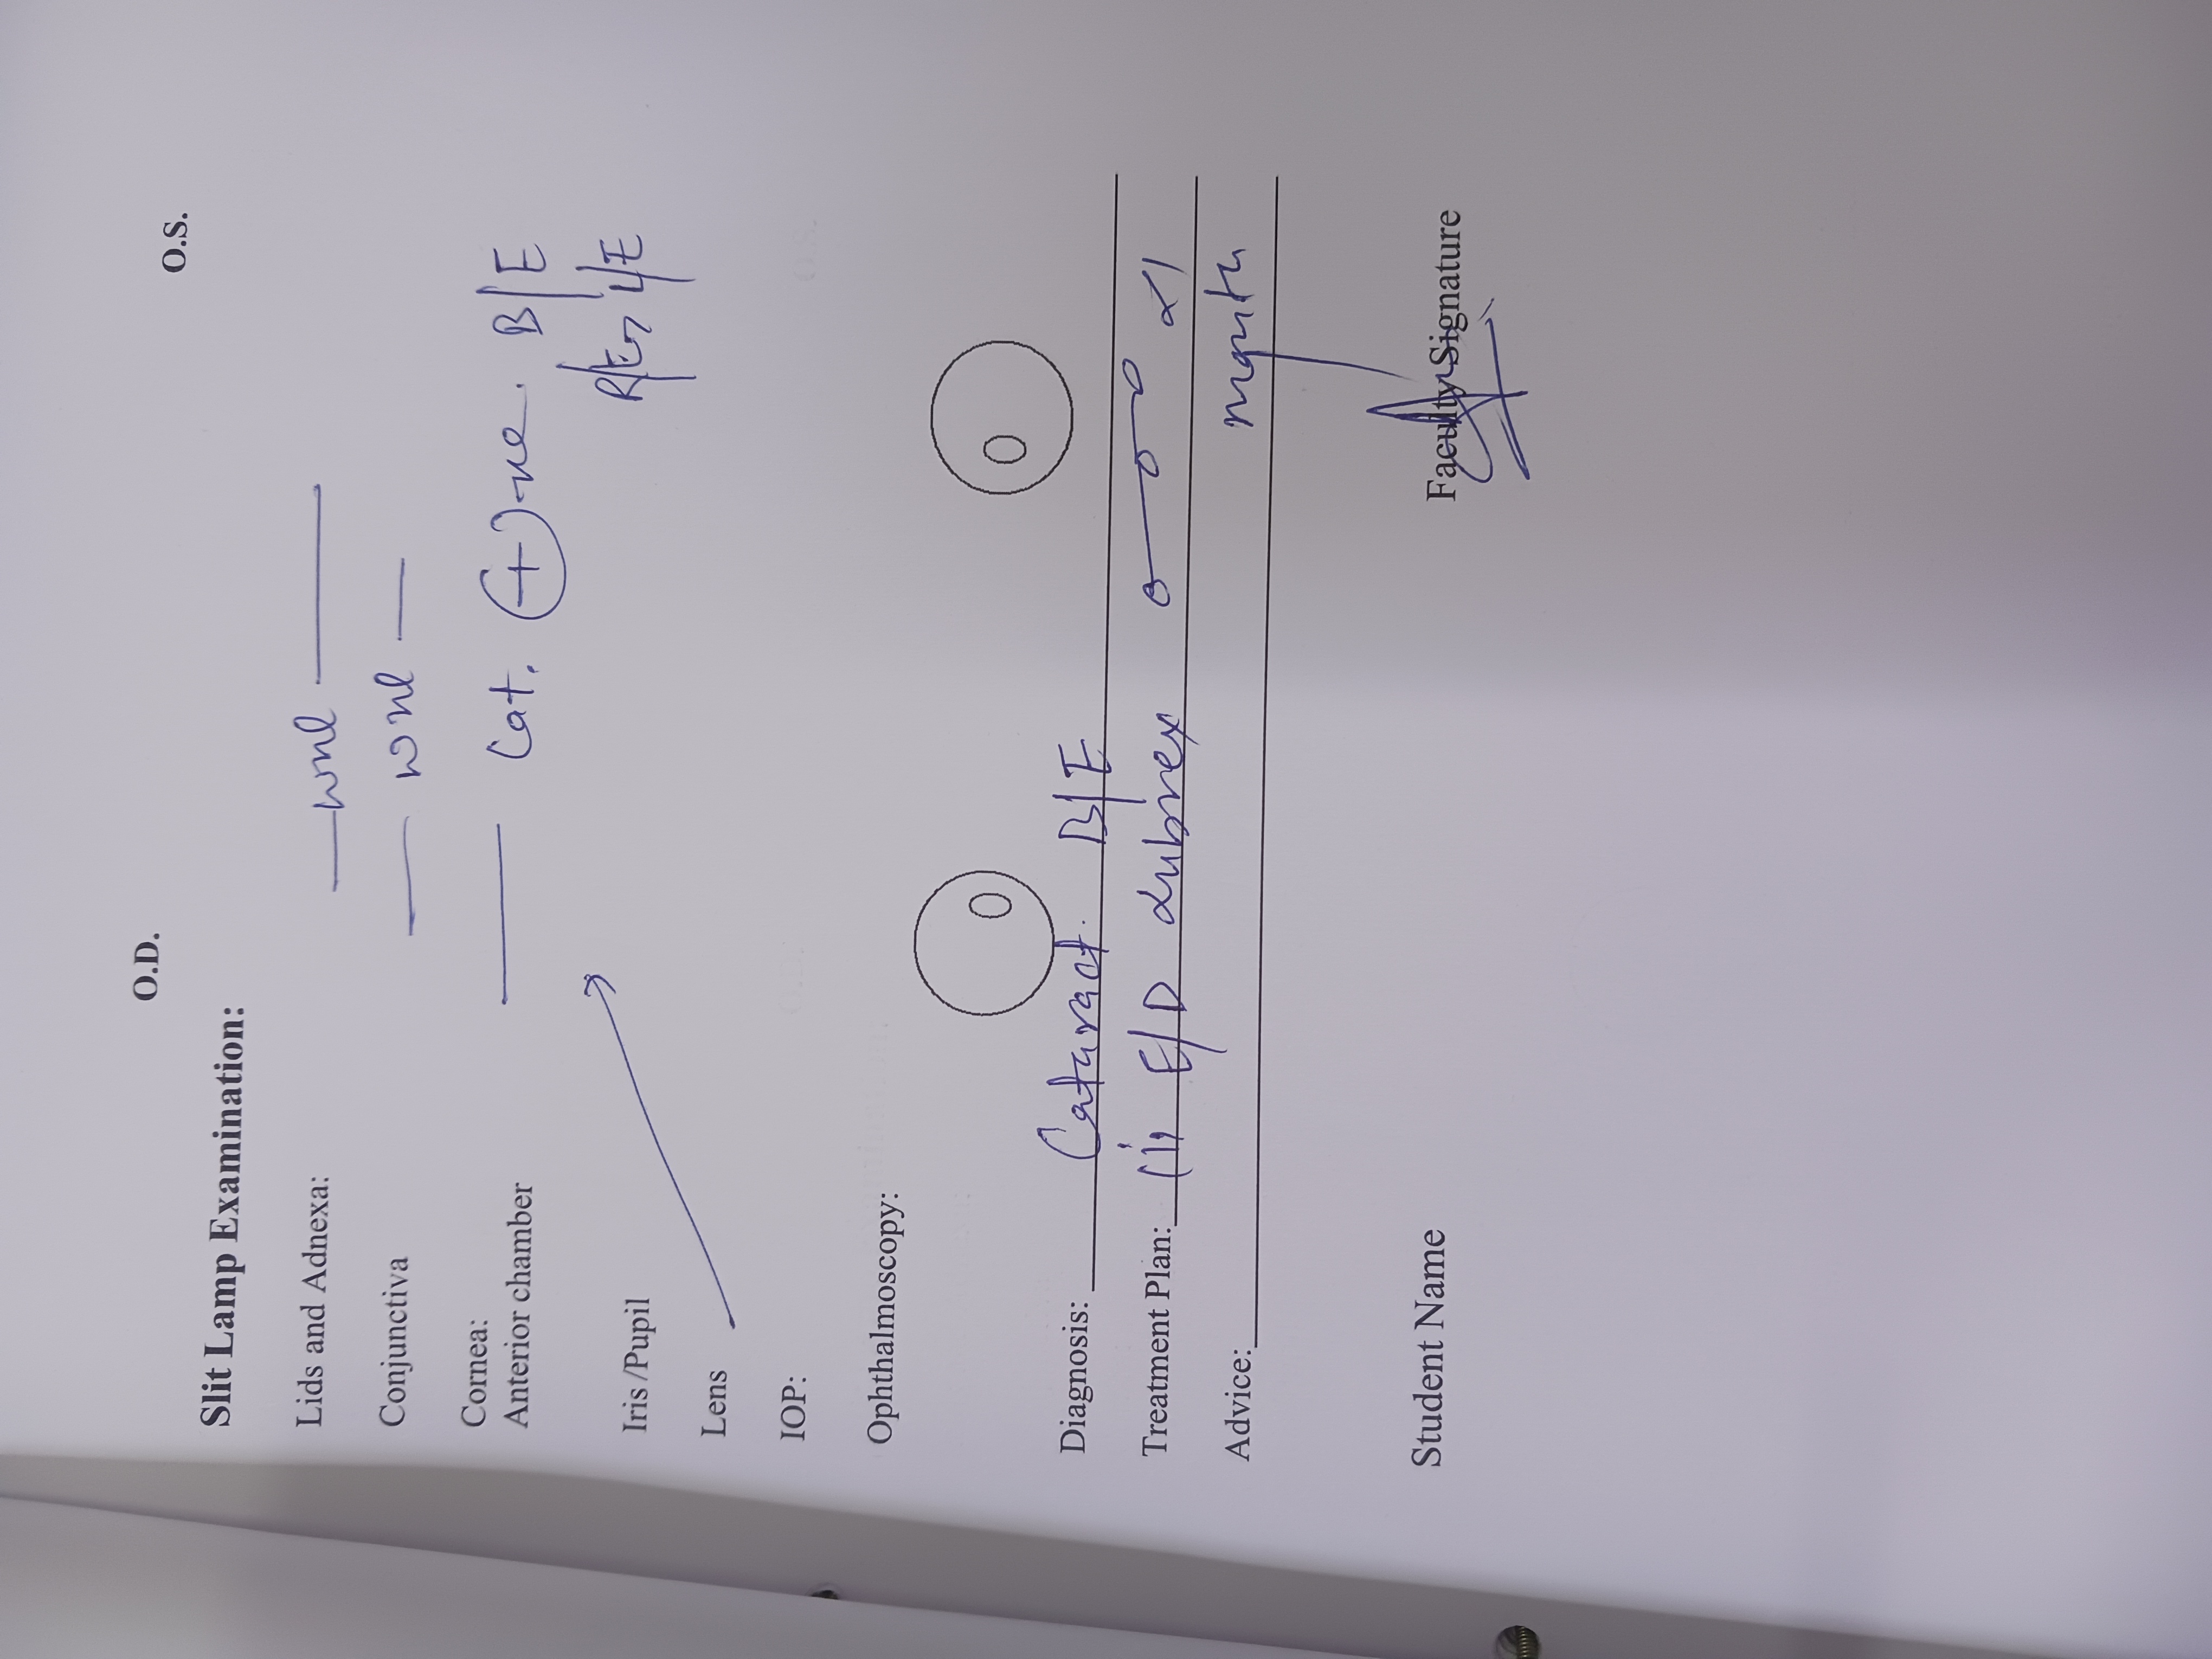 O.D. O.S.
Slit Lamp Examination:
Lids and Adnexa: wnl
Conjunctiva wnl
Cornea:
Anterior chamber Cat. (+)ve. B/E
R/E > L/E
Iris /Pupil
Lens
IOP:
Ophthalmoscopy:
Diagnosis: Cataract. B/E
Treatment Plan: (i) E/D Lubrex x1
month
Advice:
Student Name Faculty Signature